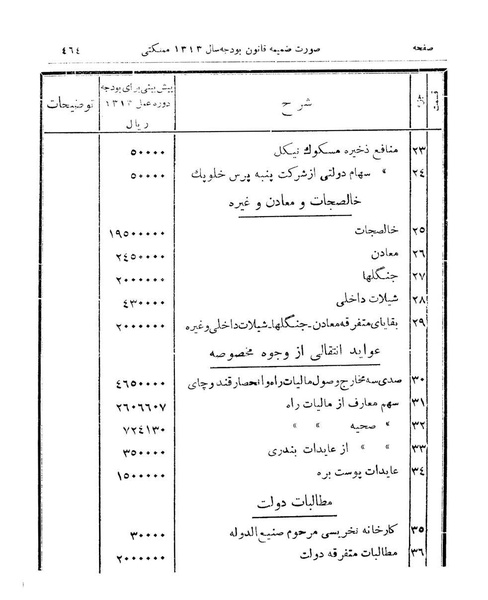 صفحه صورت ضمیمه قانون بودجه سال ۱۳۱۳ مملکتی ٤٦٤
قسمت جزء شرح پیش بینی برای بودجه دوره عمل ۱۳۱۳ ریال توضیحات
۲۳ منافع ذخیره مسکوك نیکل ۵۰۰۰۰
۲٤ » سهام دولتی از شرکت پنبه پرس خلوپك ۵۰۰۰۰
خالصجات و معادن و غیره
۲۵ خالصجات ۱۹۵۰۰۰۰۰
۲٦ معادن ۲٤۵۰۰۰۰
۲۷ جنگلها ۲۰۰۰۰۰۰
۲۸ شیلات داخلی ٤۳۰۰۰۰
۲۹ بقایای متفرقه معادن ـ جنگلها ـ شیلات داخلی وغیره ۲۰۰۰۰۰۰
عواید انتقالی از وجوه مخصوصه
۳۰ صدی سه مخارج وصول مالیات راه وانحصار قند وچای ٤٦۵۰۰۰۰
۳۱ سهم معارف از مالیات راه ۲٦۰٦٦۰۷
۳۲ » صحیه » » ۷۲٤۱۳۰
۳۳ » » از عایدات بندری ۳۵۰۰۰۰
۳٤ عایدات پوست بره ۱۵۰۰۰۰۰
مطالبات دولت
۳۵ کارخانه نخریسی مرحوم صنیع الدوله ۳۰۰۰۰
۳٦ مطالبات متفرقه دولت ۲۰۰۰۰۰۰